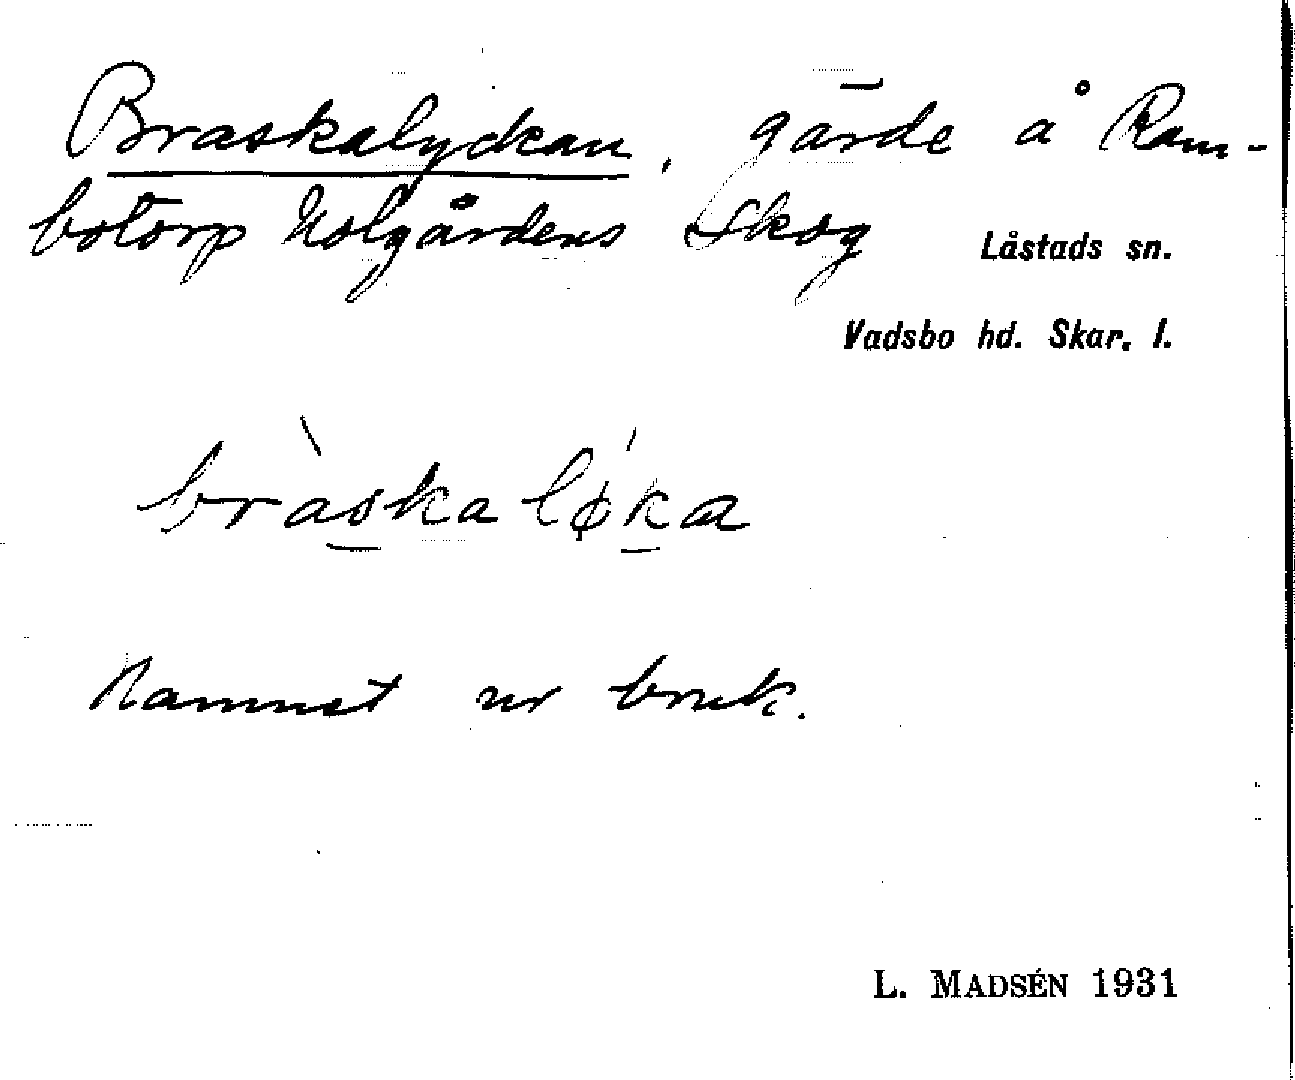 Braskalyckan, gärde å Ram-
botorp Holgårdens Skog
Låstads sn.
Vadsbo hd. Skar. l.
bràskaløka
Namnet ur bruk.
L. MADSÉN 1931